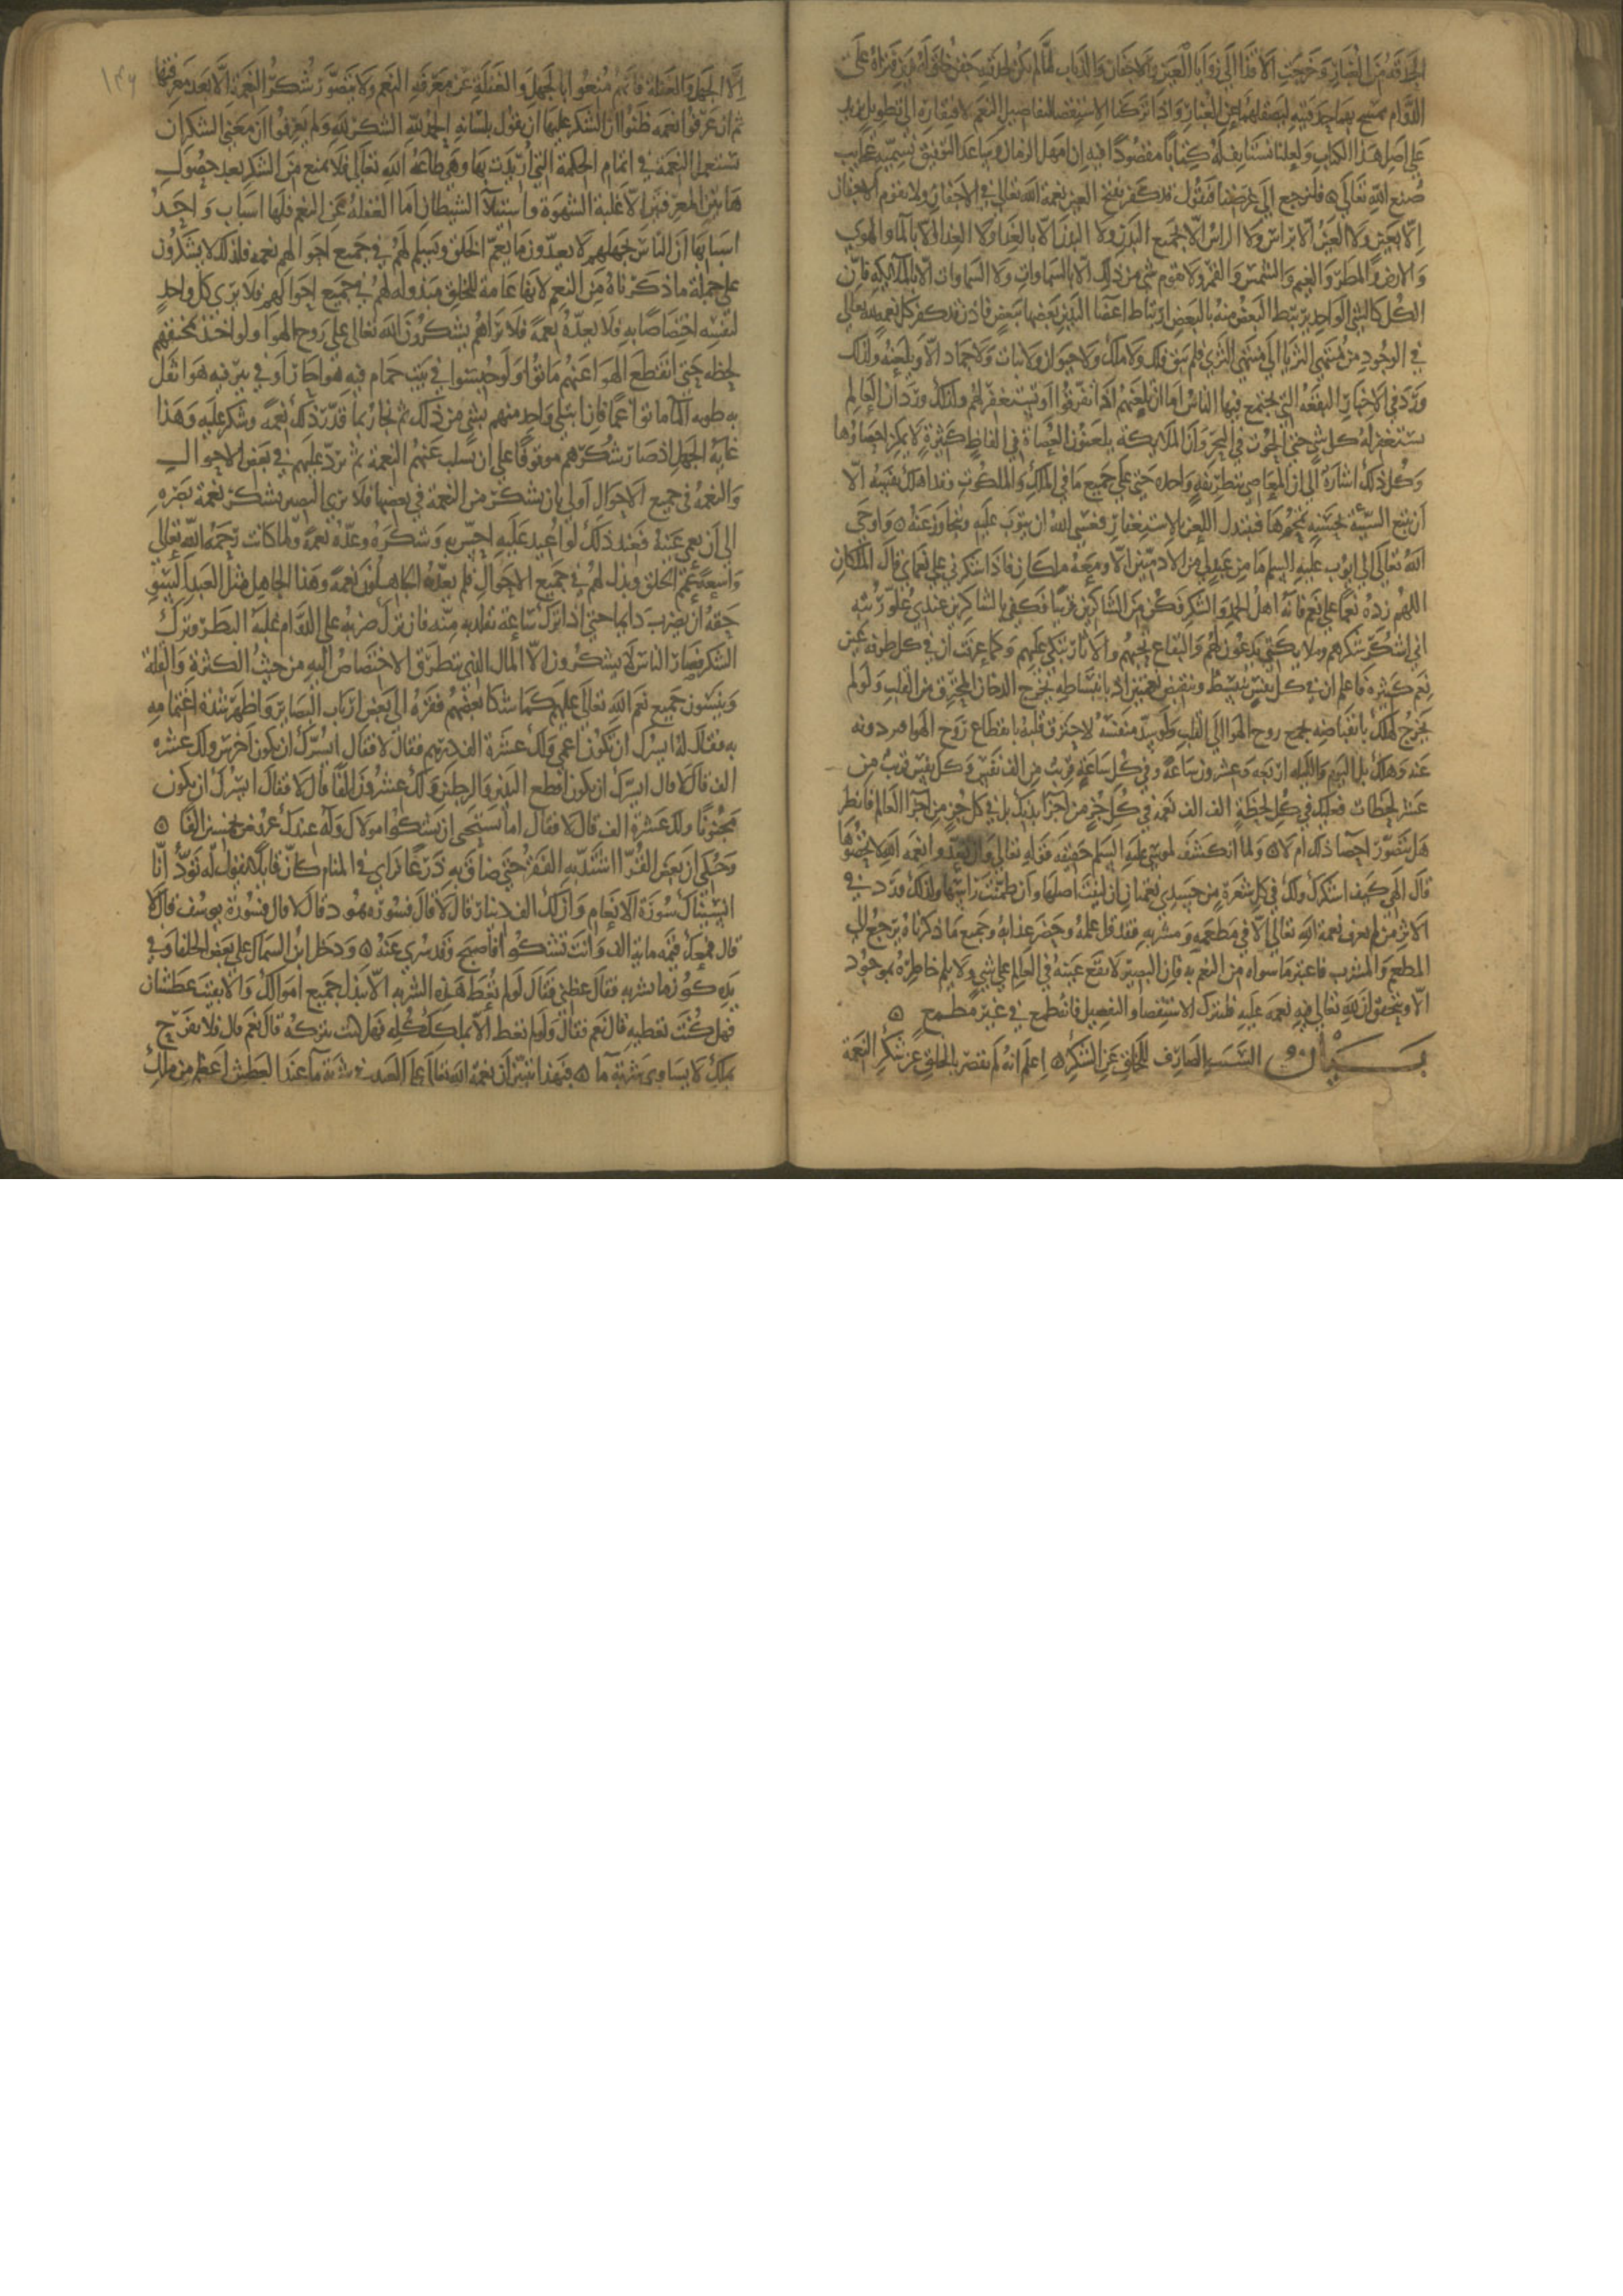 الحدقة من الغبار وخرجت الاقذا الى زوايا العين والاجفان والذباب لما لم يكن لحدقته جفن خلق له يدين فتراه على
الدوام يمسح بهما حدقتيه ليصقلهما عن الغبار واذا تركنا الاستقصا لتفاصيل النعم لافتقاره الى تطويل يزيد
على اصل هذا الكتاب ولعلنا نستانف له كتابا مقصودا فيه ان امهل الزمان وساعد التوفيق نسميه عجايب
صنع الله تعالى ۞ فلنرجع الى غرضنا فنقول قد كفر بفتح العين نعمة الله تعالى في الاجفان ولا تقوم الاجفان
الا بعين ولا العين الا براس ولا الراس الا بجميع البدن ولا البدن الا بالغذا ولا الغذا الا بالما والهوى
والارض والمطر والغيم والشمس والقمر ولا يقوم شي من ذلك الا بالسماوات ولا السماوات الا بالملايكة فان
الكل كالشي الواحد يرتبط البعض منه بالبعض ارتباط اعضا البدن بعضها ببعض فاذن قد كفر كل نعمة لله تعالى
في الوجود من منتهى الثريا الى منتهى الثرى فلم يبق فلك ولا ملك ولا حيوان ولا نبات ولا جماد الا ويلعنه ولذلك
ورد في الاخبار ان البقعة التي يجتمع فيها الناس اما ان تلعنهم اذا تفرقوا او تستغفر لهم ولذلك ورد ان العالم
يستغفر له كل شي حتى الحوت في البحر وان الملايكة يلعنون العصاة في الفاظ كثيرة لا يمكن احصاوها
وكل ذلك اشارة الى ان العاصي بتطريفة واحدة جنى على جميع ما في الملك والملكوت وقد اهلك نفسه الا
ان يتبع السيئة بحسنة تمحوها فيتبدل اللعن بالاستغفار فعسى الله ان يتوب عليه ويتجاوز عنه ۞ واوحى
الله تعالى الى ايوب عليه السلم ما من عبد لي من الادميين الا ومعه ملكان فاذا شكرني على نعماي قال الملكان
اللهم زده نعما على نعم فانك اهل الحمد والشكر فكن من الشاكرين قريبا فكفى بالشاكرين عندي علو رتبة
اني اشكر شكرهم وملايكتي يدعون لهم والبقاع تحبهم والاثار تبكي عليهم وكما عرفت ان في كل طرفة عين
نعم كثيرة فاعلم ان في كل نفس ينبسط وينقبض نعمتين اذ بانبساطه يخرج الدخان المحترق من القلب ولو لم
يخرج لهلك بانقباضه يجمع روح الهوا الى القلب ولو سد متنفسه لاحترق قلبه بانقطاع روح الهوا وبرودته
عنه وهلك بل اليوم والليلة اربعة وعشرون ساعة وفي كل ساعة قريب من الف نفس وكل نفس قريب من
عشر لحظات فعليك في كل لحظة الف الف نعمة في كل جزء من اجزا بدنك بل في كل جزء من اجزا العالم فانظر
هل يتصور احصا ذلك ام لا ۞ ولما انكشف لموسى عليه السلم حقيقة قوله تعالى وان تعدوا نعمة الله لا تحصوها
قال الهي كيف اشكرك ولك في كل شعرة من جسدي نعمتان ان لينت اصلها وان طمنت راسها ولذلك ورد في
الاثر من لم يعرف نعمة الله تعالى الا في مطعمه ومشربه فقد قل علمه وحضر عذابه وجميع ما ذكرناه يرجع الى
المطعم والمشرب فاعتبر ما سواه من النعم به فان البصير لا تقع عينه في العالم على شي ولا يلم خاطره بموجود
الا ويتحقق ان لله تعالى فيه نعمة عليه فلنترك الاستقصا والتفصيل فانه طمع في غير مطمع ۞
بيان السبب الصارف للخلق عن الشكر ۞ اعلم انه لم يقصر بالخلق عن شكر النعمة
١٤٦
الا الجهل والغفلة فانهم منعوا بالجهل والغفلة عن معرفة النعم ولا يتصور شكر النعمة الا بعد معرفتها
ثم ان عرفوا نعمة ظنوا ان الشكر عليها ان يقول بلسانه الحمد لله الشكر لله ولم يعرفوا ان معنى الشكر ان
تستعمل النعمة في اتمام الحكمة التي اريدت بها وهي طاعة الله تعالى فلا يمنع من الشكر بعد حصول
هاتين المعرفتين الا غلبة الشهوة واستيلا الشيطان اما الغفلة عن النعم فلها اسباب واحد
اسبابها ان الناس بجهلهم لا يعدون ما يعم الخلق ويسلم لهم في جميع احوالهم نعمة فلذلك لا يشكرون
على جملة ما ذكرناه من النعم لانها عامة للخلق مبذولة لهم في جميع احوالهم فلا يرى كل واحد
لنفسه اختصاصا به فلا يعده نعمة فلا تراهم يشكرون الله تعالى على روح الهوا ولو اخذ بمخنقهم
لحظة حتى انقطع الهوا عنهم ماتوا ولو حبسوا في بيت حمام فيه هوا حار او في بير فيه هوا ثقل
به رطوبة الما ماتوا غما فان ابتلي واحد منهم بشي من ذلك ثم نجا ربما قدر ذلك نعمة وشكر عليه وهذا
غاية الجهل اذ صار شكرهم موقوفا على ان تسلب عنهم النعمة ثم ترد عليهم في بعض الاحوال
والنعمة في جميع الاحوال اولى بان تشكر من النعمة في بعضها فلا ترى البصير يشكر نعمة بصره
الى ان يعمى عينه فعند ذلك لو اعيد عليه احس به وشكره وعده نعمة ولما كانت رحمة الله تعالى
واسعة عم الخلق وبذل لهم في جميع الاحوال فلم يعده الجاهلون نعمة وهذا الجاهل مثل العبد السو
حقه ان يضرب دايما حتى اذا ترك ساعة تقلد به منه فان ترك ضربه على الدوام غلبه البطر وترك
الشكر فصار الناس لا يشكرون الا المال الذي يتطرق الاختصاص اليه من حيث الكثرة والقلة
وينسون جميع نعم الله تعالى عليهم كما شكا بعضهم فقره الى بعض ارباب البصاير واظهر شدة اغتمامه
به فقال له ايسرك ان تكون اعمى ولك عشرة الف درهم فقال لا فقال ايسرك ان تكون اخرس ولك عشرة
الف قال لا قال ايسرك ان تكون اقطع اليدين والرجلين ولك عشرون الفا قال لا فقال ايسرك ان تكون
مجنونا ولك عشرة الف قال لا فقال اما تستحي ان تشكوا مولاك وله عندك عروض بخمسين الفا ۞
وحكي ان بعض القرا اشتد به الفقر حتى ضاق به ذرعا فراي في المنام كان قايلا يقول له تود انا
انسيناك سورة الانعام وان لك الف دينار قال لا قال فسورة هود قال لا قال فسورة يوسف قال لا
قال فمعك قيمة ماية الف وانت تشكوا فاصبح وقد سري عنه ۞ ودخل ابن السماك على بعض الخلفا وفي
يده كوز ما يشربه فقال عظني فقال لو لم تعط هذه الشربة الا ببذل جميع اموالك والا بقيت عطشان
فهل كنت تعطيه قال نعم فقال ولو لم تعط الا بملكك كله فهل كنت تتركه قال نعم قال فلا تفرح
بملك لا يساوي شربة ما ۞ فبهذا تبين ان نعمة الله تعالى على العبد في شربة ما عند العطش اعظم من ملك